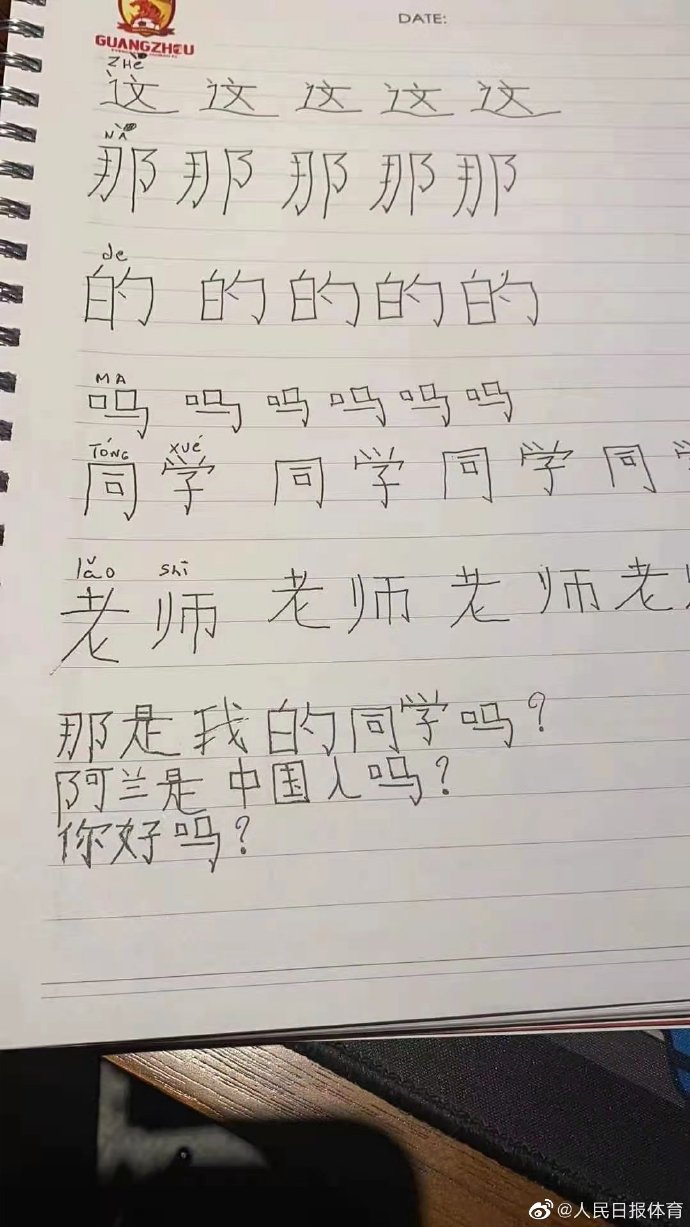 DATE:
GUANGZHOU
ZHè
这 这 这 这 这
NÀ
那 那 那 那 那
de
的 的 的 的 的
MA
吗 吗 吗 吗 吗 吗
TóNG xué
同 学 同 学 同 学 同 学
lǎo shī
老 师 老 师 老 师 老
那是我的同学吗?
阿兰是中国人吗?
你好吗?
@人民日报体育